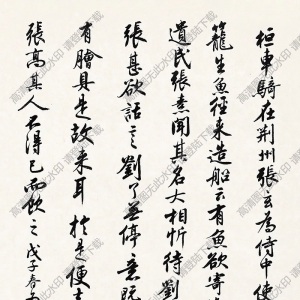 桓車騎在荆州張玄為侍中使
籠生魚徑来造船云有魚欲寄
遺民張素聞其名大相忻待劉
張甚欲話言劉了無停意既
有膾具是故来耳於是便去
張高其人不得已而飲之戊子春